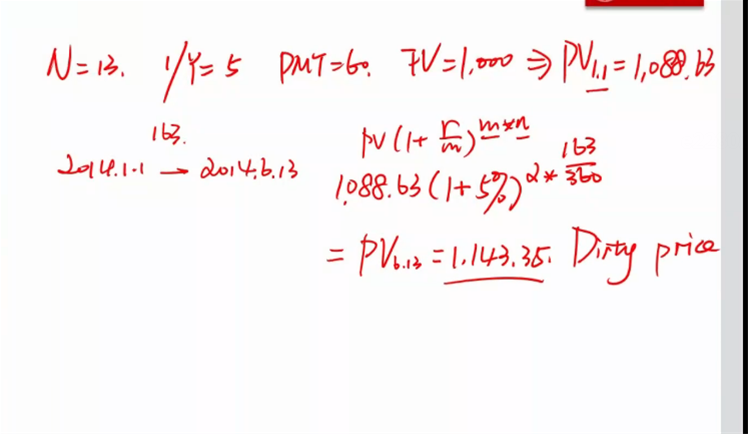 N=13. I/Y=5 PMT=60. FV=1,000 ⇒ PV1.1=1,088.63
163.
2014.1.1 → 2014.6.13
PV(1+r/m)^m*n
1,088.63(1+5%)^2*163/360
=PV6.13=1,143.35. Dirty price